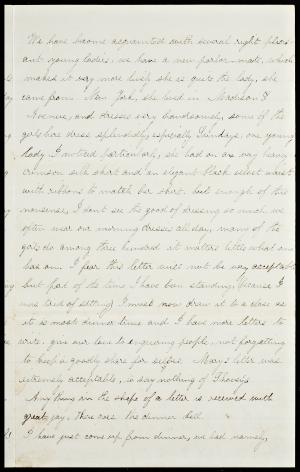 We have become acquainted with several right pleas-
ant young ladies, we have a new parlor-mate, which
makes it very more lively she is quite the lady, she
came from New York, she lived in Madison
Avenue, and dresses very handsomely, some of the
girls here dress splendidly, especially Sundays, one young
lady I noticed particularly, she had on a very heavy
crimson silk skirt and an elegant black velvet waist
with ribbons to match her skirt, but enough of this
nonsense, I don't see the good of dressing so much we
often wear our morning dresses all day, many of the
girls do among three hundred it matters little what one
has on. I fear this letter will not be very acceptable
but part of the time I have been standing because I
was tired of sitting I must now draw it to a close as
it is most dinner time and I have more letters to
write, give our love to enquiring people, not forgetting
to keep a goodly share for selves. Mary's letter was
extremely acceptable, to say nothing of
Any thing in the shape of a letter is received with
great joy. There goes the dinner bell
I have just come up from dinner, we had namely,